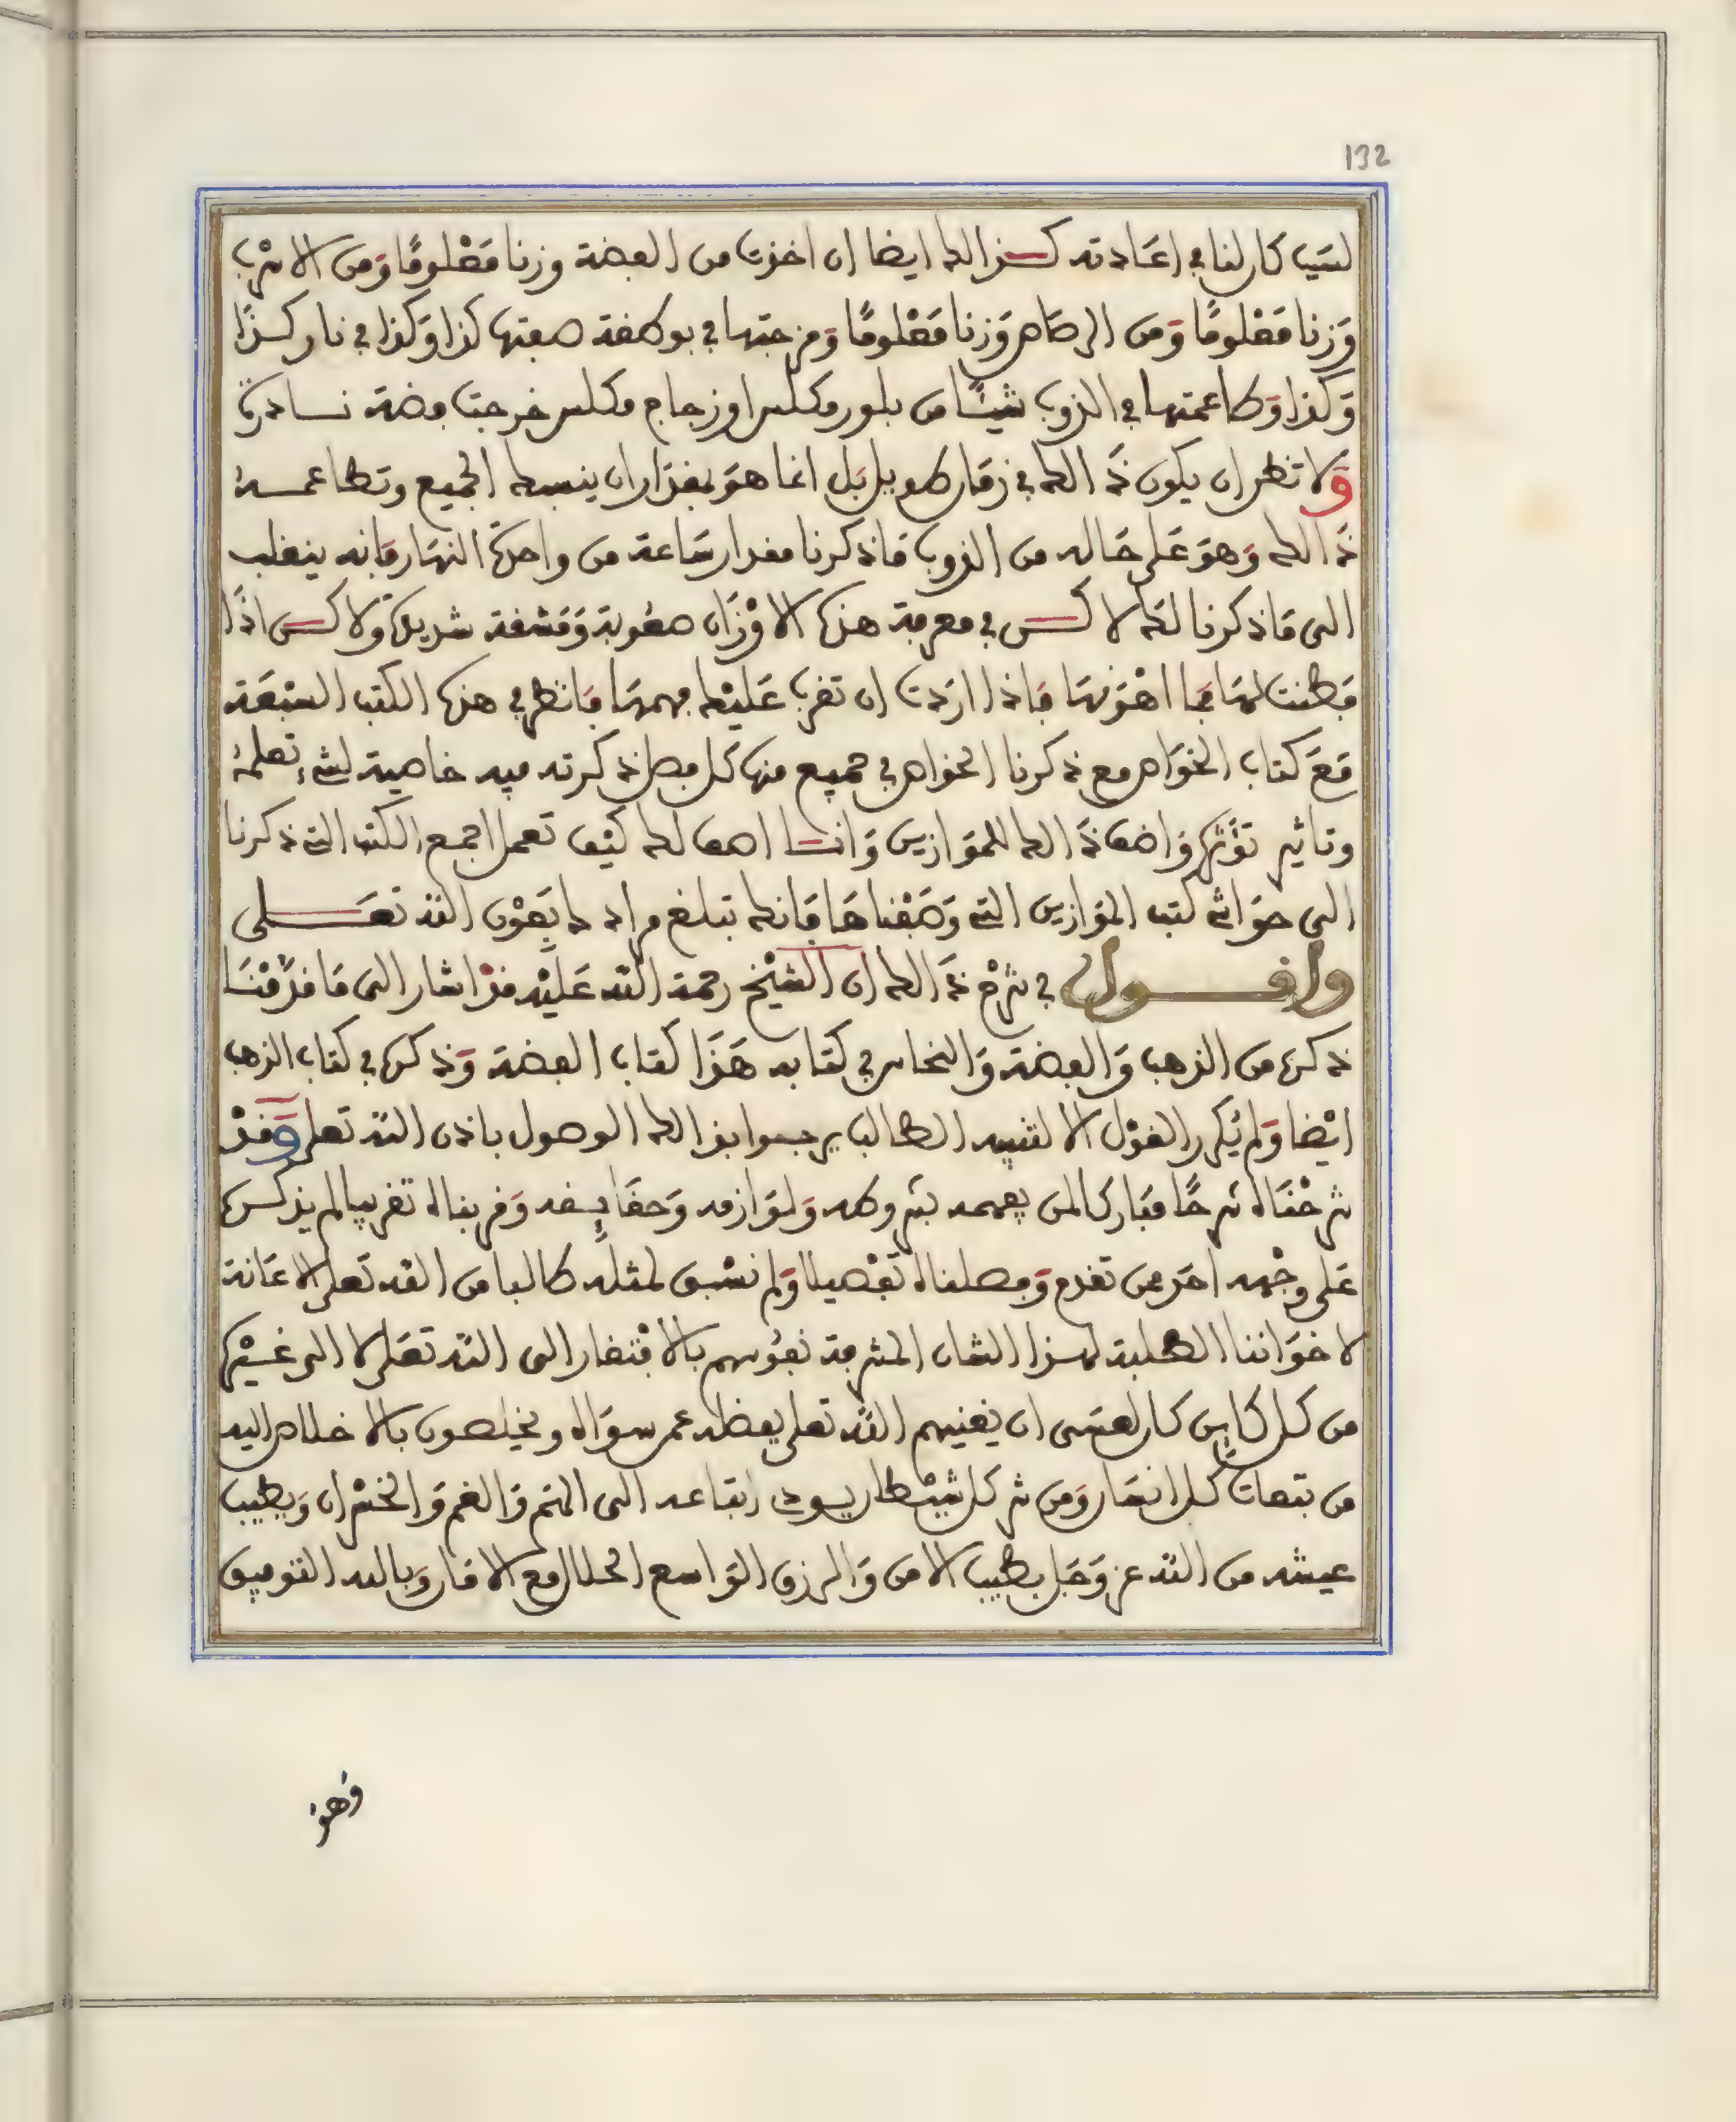 132
لسبب كان لنا في اعَادته كـذالك ايضا ان اخذت من الفضة وزنا مَعْلومًا وَمن الاسْرب
وَزنا مَعْلومًا وَمن الرصَاص وَزنا مَعْلومًا وَمزجتها في بوطقة صفتها كذا وَكذا في نار كـذَا
وَكذا وَطاعمتها في الذوب شيئًا من بلور مكلس او زجاج مكلس خرجت فضة نـادرة
وَلا تظن ان يكون ذَالك في زمَان طويل بَل انما هوَ بمقدَار ان ينسبك الجميع وتطاعمـه
ذَالك وَهوَ عَلى حَاله من الذوب مَا ذكرنا مقدار سَاعة من واحدة النهَار فَانه ينقلب
الى مَا ذكرنا لكَ لاكـن في معرفة هذه الاوْزَان صعُوبة وَمَشقة شديدة وَلاكـن اذَا
فَطنت لهَا فمَا اهْوَنهَا فَاذا ارَدت ان تقرب عَليْك فهمهَا فَانظر في هذه الكتب السّبْعَة
مَعَ كتاب الخوَاص مع ذكرنا الخواص في جميع منها كل فصل ذكرته فيه خاصية لشيء تعلمهُ
وتاثير تؤَثره وَاضف ذَالك للموَازين وَانـا اصف لك كيْف تعمل اجمع الكتب التي ذكرنا
الى حوَاشي كتب الموَازين التي وَصَفْناهَا فَانك تبلغ مرادك بعَوْن اللّه تعَـلى
واقـول في شرْح ذَالك ان الشيْخ رحمة اللّه عَليْه قدْ اشار الى مَا قدّمْنَا
ذكره من الذهب وَالفضة وَالنحاس في كتابه هَذَا كتاب الفضة وَذكره في كتاب الذهب
ايْضا وَلم يُكرر القوْل الا لتنبيه الطالب يرجـو ابذالك الوصول باذن اللّه تعلى وَقدْ
شرحْنَاه شرحًا مبَاركا لمن يفهمه بشروطه وَلوَازمه وَحقَايـقه وَقربناه تقريبا لم يذكـره
عَلى وجْهه احَد ممن تقدم وَفصلناه تفْصيلا وَلم نسْبق لمثله طالبا من اللّه تعَلى الاعَانة
لاخوَاننا الطلبة لهـذا الشان المشرفة نفُوسهم بالافْتقار الى اللّه تعَلى لا الى غـيْره
من كـل كاين كان لعسَى ان يغنيهم اللّه تعلى بفضله عمن سوَاه ويخلصون بالاخلاص اليه
من تبعات كـل انسَان وَمن شر كل شيْطان يسوءه اتباعه الى الهَم وَالغم وَالخسْران وَيطيب
عيشه من اللّه عز وَجَل بطيب الامن وَالرزق الوَاسع الحلال مع الامَان وَبالله التوفيق
وَهوَ